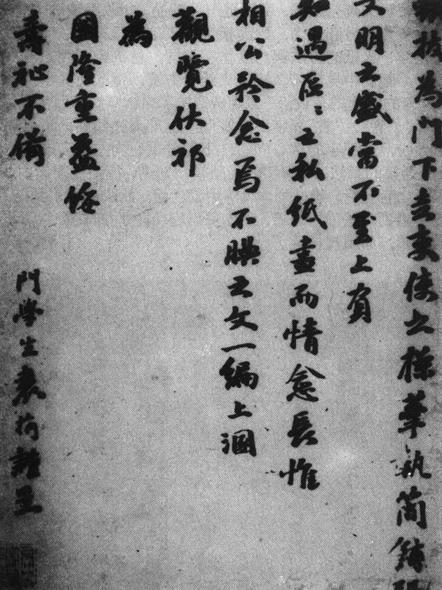 為門下走吏使之操筆執簡鋪
文明之盛當不至上負
知遇區區之私紙盡而情愈長惟
相公矜念焉不腆之文一編上溷
觀覽伏祈
為
國隆重益綏
壽祉不備 門學生袁桷謹呈